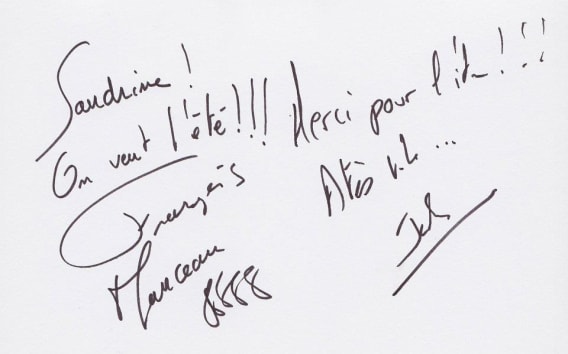 Sandrine !
On veut l'été !!!
François
Manceau
Merci pour l'itw !!!
A très v.t. ...